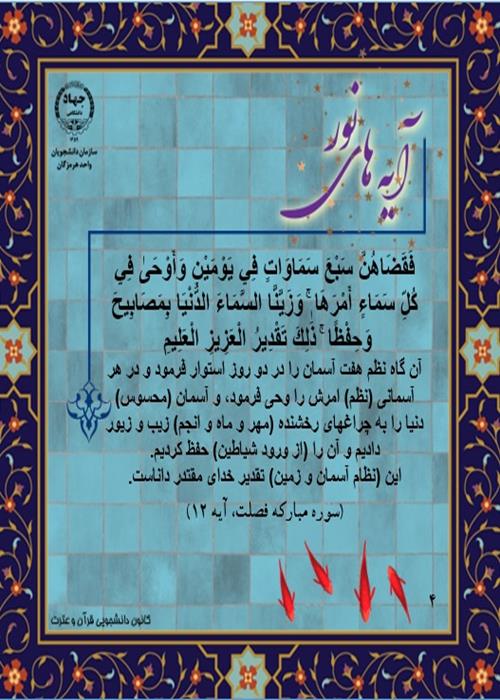 جهاد
دانشگاهی
۱۳۵۹
سازمان دانشجویان
واحد هرمزگان
آیه های نور
فَقَضَاهُنَّ سَبْعَ سَمَاوَاتٍ فِي يَوْمَيْنِ وَأَوْحَىٰ فِي
كُلِّ سَمَاءٍ أَمْرَهَا ۚ وَزَيَّنَّا السَّمَاءَ الدُّنْيَا بِمَصَابِيحَ
وَحِفْظًا ۚ ذَٰلِكَ تَقْدِيرُ الْعَزِيزِ الْعَلِيمِ
آن گاه نظم هفت آسمان را در دو روز استوار فرمود و در هر
آسمانی (نظم) امرش را وحی فرمود، و آسمان (محسوس)
دنیا را به چراغهای رخشنده (مهر و ماه و انجم) زیب و زیور
دادیم و آن را (از ورود شیاطین) حفظ کردیم.
این (نظام آسمان و زمین) تقدیر خدای مقتدر داناست.
(سوره مبارکه فصلت، آیه ۱۲)
۴
کانون دانشجویی قرآن و عترت